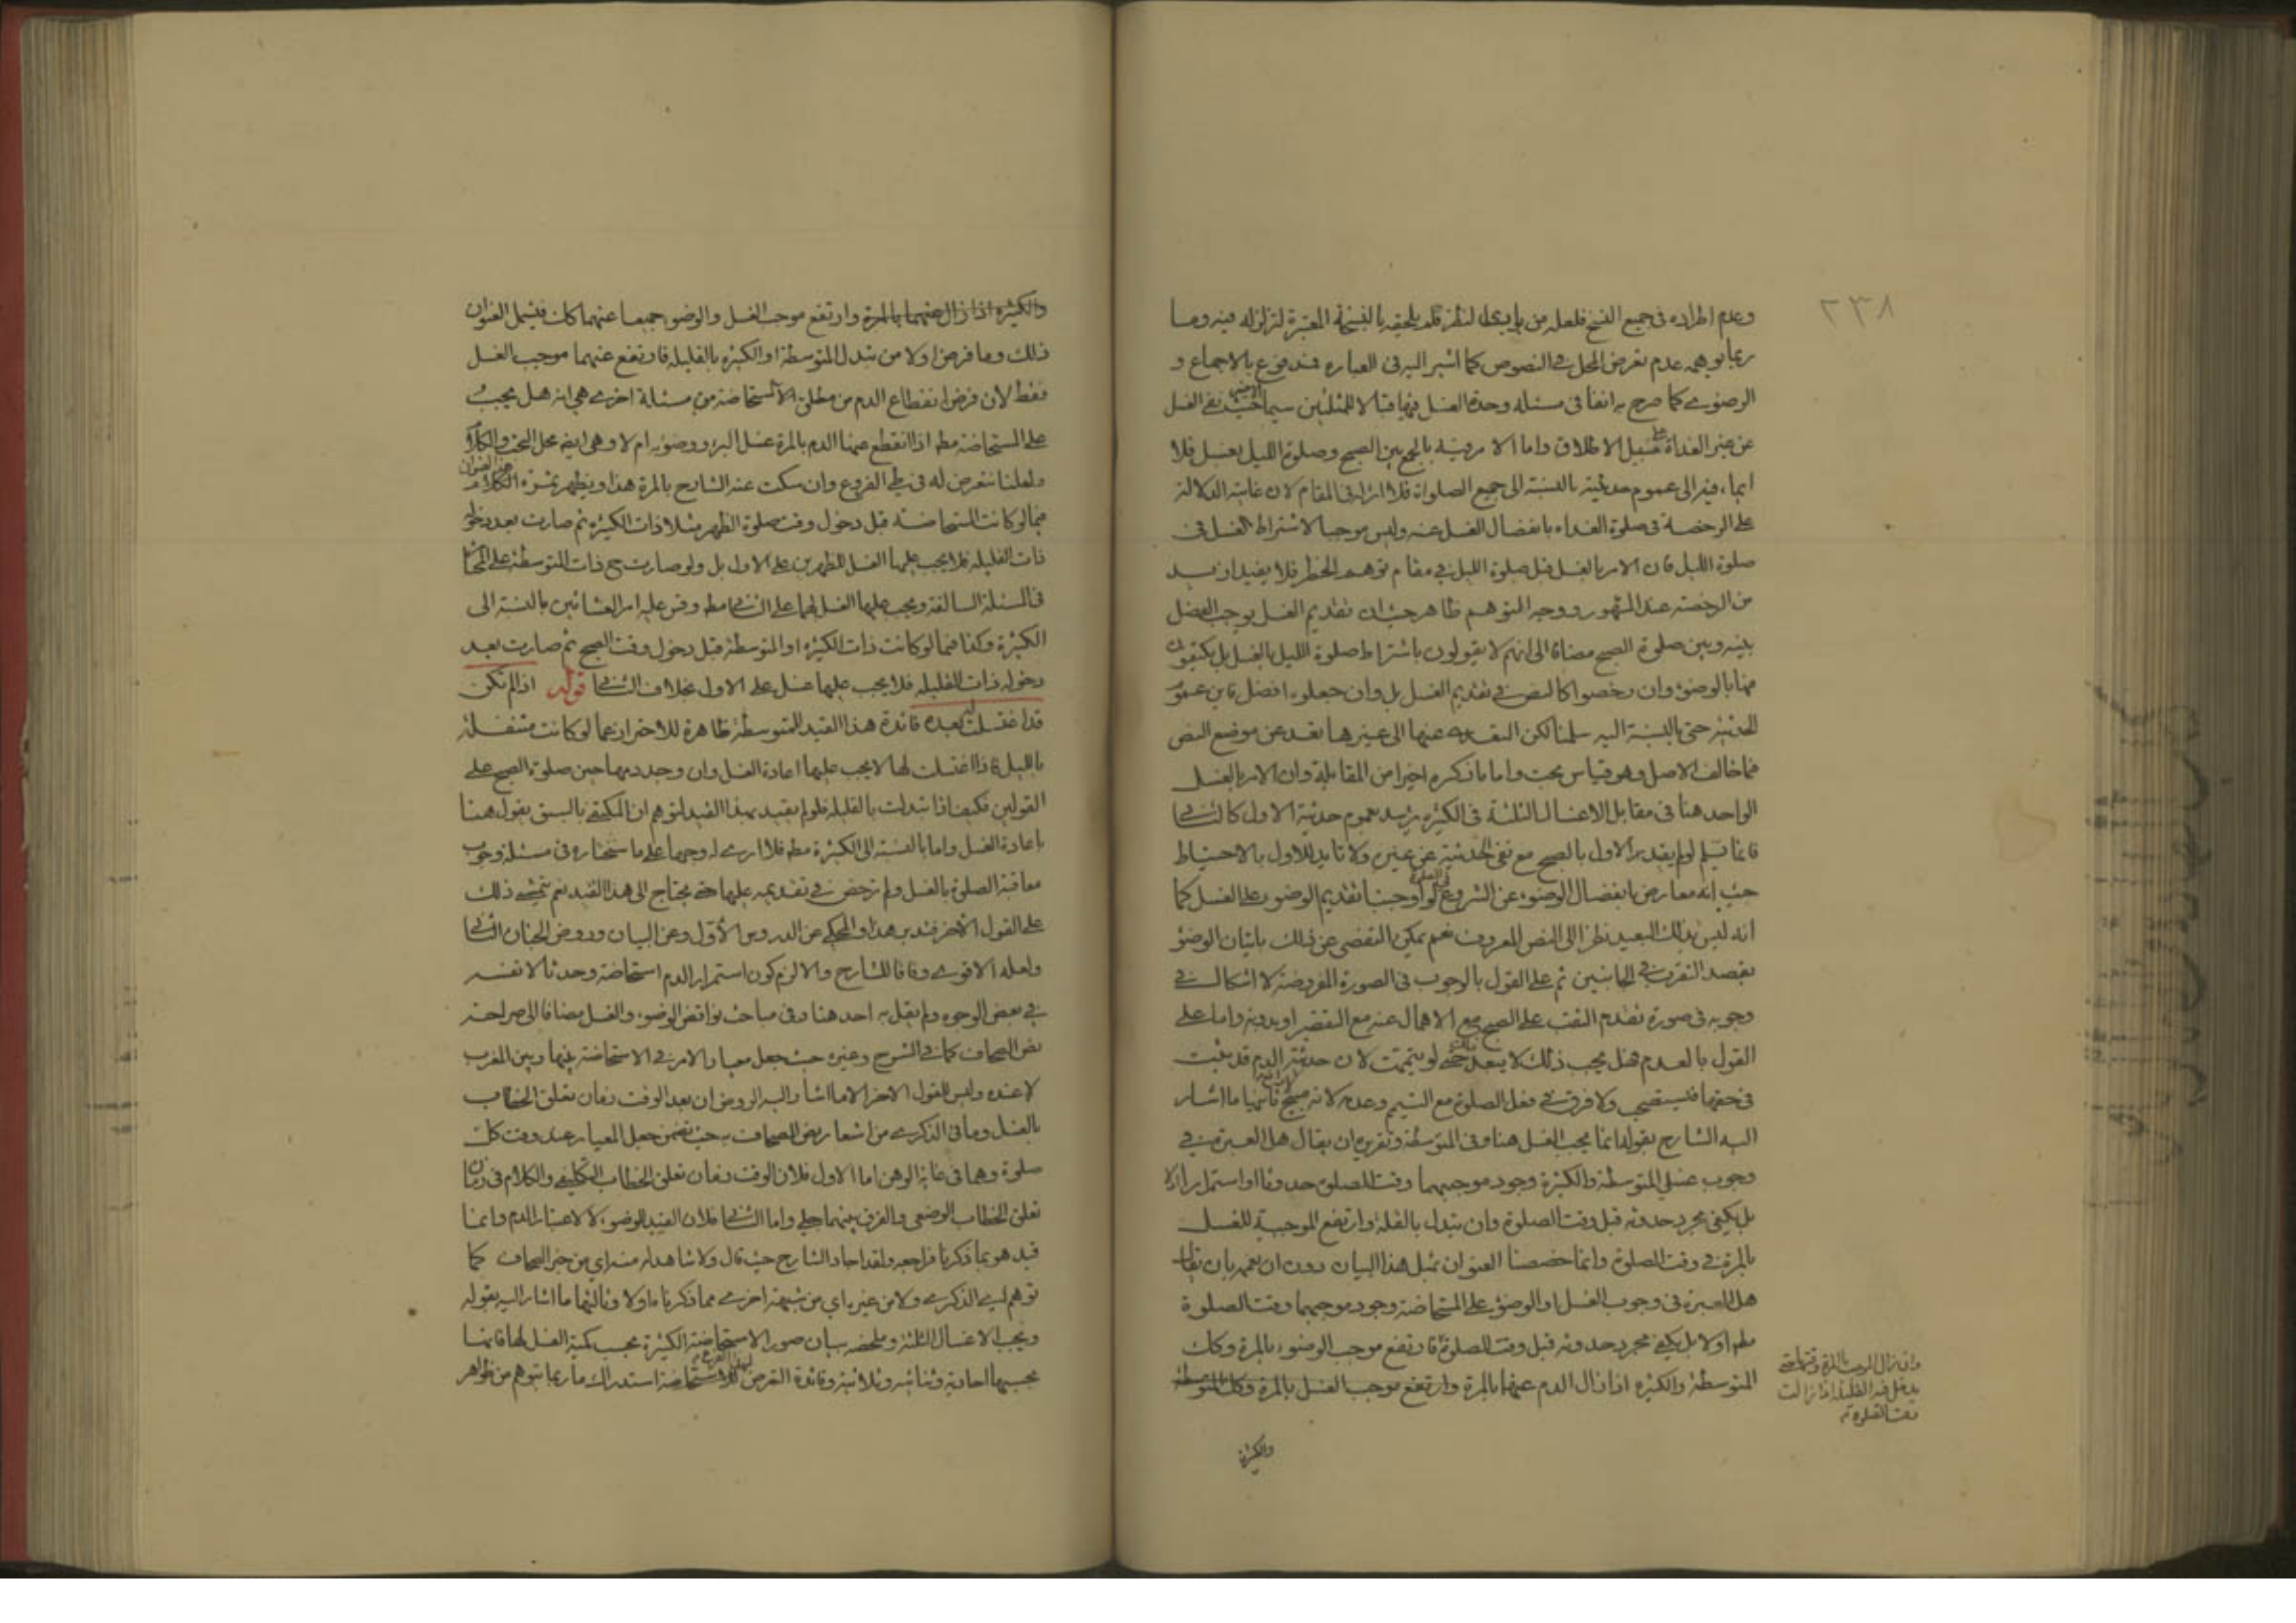 ٢٣٨
وعدم اطراده فى جميع النسخ فلعله من بادى النظر قلم يلحقه بالنسخة المعتبرة لتزلزله فيه وما
ربما يوهمه عدم تعرض المحل في النصوص كما اشير اليه فى العبارة فمدفوع بالاجماع و
الرضوي كما صرح به انفا فى مسئلة وحدة الغسل فيها قبالا للمثلثين سيما حيث نفى الغسل
عن غير الغداة على سبيل الاطلاق واما الامر فيه بالجمع بين الصبح وصلوة الليل بغسل فلا
ايماء فيه الى عموم حدثيته بالنسبة الى جميع الصلوات فلا اثر له فى المقام لان غايته الدلالة
على الرخصة فى صلوة الغداة بانفصال الغسل عنه وليس موجبا لاشتراط الغسل فى
صلوة الليل فان الامر بالغسل قبل صلوة الليل في مقام توهم الحظر فلا يفيد ازيد
من الرخصة عند المشهور ووجه التوهم ظاهر حيث ان تقديم الغسل يوجب الفصل
بينه وبين صلوة الصبح مضافا الى انهم لا يقولون باشتراط صلوة الليل بالغسل بل يكتفون
فيها بالوضوء وان رخصوا كالنص في تقديم الغسل بل وان جعلوه افضل فاين عموم
الحدثية حتى بالنسبة اليه سلمنا لكن التعدى عنها الى غيرها تعد عن موضع النص
فيما خالف الاصل وهو قياس بحت واما ما ذكره اخيرا من المقابلة وان الامر بالغسل
الواحد هنا فى مقابل الاغسال الثلثة فى الكثيرة يزيد عموم حدثية الاول كالثاني
فانما يسلم لو لم يقدر الاول بالصبح مع نفى الحدثية عن غيره ولا تاييد للاول بالاحتياط
حيث انه معارض بانفصال الوضوء عن الشروع فى الصلوة لو اوجبنا تقديم الوضوء على الغسل كما
انه ليس بذلك البعيد نظرا الى النص المعروف نعم يمكن التفصى عن ذلك باتيان الوضوء
بقصد التقرب في الجانبين ثم على القول بالوجوب فى الصورة المفروضة لا اشكال في
وجوبه فى صورة تقدم الثقب على الصبح مع الاهمال عنه مع التقصير او بدونه واما على
القول بالعدم هل يجب ذلك لا يبعد حتى لو تيممت لان حدثية الدم قد ثبت
فى حقها فيستصحب ولا فرق في فعل الصلوة مع التيمم وعدمه لانه مبيح لا رافع ثانيها ما اشار
اليه الشارح بقوله انما يجب الغسل هنا وفى المتوسطة وتقريره ان يقال هل العبرة في
وجوب غسل المتوسطة والكثيرة وجود موجبهما وقت الصلوة حدوثا او استمرارا اولا
بل يكفى مجرد حدوثه قبل وقت الصلوة وان تبدل بالقلة وارتفع الموجبية للغسل
بالمرة في وقت الصلوة وانما خصصنا العنوان بمثل هذا البيان دون ان نعمه بان يقال
هل العبرة فى وجوب الغسل او الوضوء على المستحاضة وجود موجبهما وقت الصلوة
مطم اولا بل يكفي مجرد حدوثه قبل وقت الصلوة فارتفع موجب الوضوء بالمرة وكك
المتوسطة والكثيرة اذا زال الدم عنها بالمرة وارتفع موجب الغسل بالمرة وكك المتوسطة
وان زال الموجب بالمرة وقتها حتى
يدخل فيه القليلة اذا زالت
وقت الصلوة
والكثيرة
والكثيرة اذا زال عنهما بالمرة وارتفع موجب الغسل والوضوء جميعا عنهما كان فيشمل العنوان
ذلك وما فرض اولا من تبدل المتوسطة او الكثيرة بالقليلة فارتفع عنهما موجب الغسل
فقط لان فرض انقطاع الدم من مطلق الاستحاضة من مسئلة اخرى هي انه هل يجب
على المستحاضة مطم اذا انقطع عنها الدم بالمرة غسل البرء ووضوئه ام لا وهى ايضا محل البحث والكلام
ولعلنا نتعرض له فى طي الفروع وان سكت عنه الشارح بالمرة هذا ويظهر ثمرة الكلام فى هذا العنوان
فيما لو كانت المستحاضة قبل دخول وقت صلوة الظهر مثلا ذات الكثيرة ثم صارت بعد دخوله
ذات القليلة فلا يجب عليها الغسل للظهرين على الاول بل ولو صارت ح ذات المتوسطة على المختار
فى المسئلة السالفة ويجب عليها الغسل لهما على الثاني مطم وقس عليه امر العشائين بالنسبة الى
الكثيرة وكذا فيما لو كانت ذات الكثيرة او المتوسطة قبل دخول وقت الصبح ثم صارت بعد
دخوله ذات القليلة فلا يجب عليها غسل على الاول بخلاف الثاني قوله اذا لم تكن
قد اغتسلت بعده فائدة هذا القيد للمتوسطة ظاهرة للاحتراز عما لو كانت متنفلة
بالليل فاذا اغتسلت لها لا يجب عليها اعادة الغسل وان وجد دمها حين صلوة الصبح على
القولين فكيف اذا تبدلت بالقليلة فلو لم يقيد بهذا القيد لتوهم ان المكتفى بالسبق يقول هنا
باعادة الغسل واما بالنسبة الى الكثيرة مطم فلا ارى له وجها على ما سنختاره فى مسئلة وجوب
معاقبة الصلوة بالغسل ولم ترخص في تقديمه عليها حتى يحتاج الى هذا القيد نعم يتمشى ذلك
على القول الاخر فتدبر هذا والمحكي عن الدروس الأول وعن البيان وروض الجنان الثاني
ولعله الاقوى وفاقا للشارح والا لزم كون استمرار الدم استحاضة وحدثا لا نفسه
في بعض الوجوه ولم يقل به احد هنا وفى مباحث نواقض الوضوء والغسل مضافا الى صراحة
نص الصحاف كما في الشرح وغيره حيث جعل معيار الامر في الاستحاضة بينها وبين المغرب
لا عنده وليس للقول الاخر الا ما اشار اليه الروض ان بعد الوقت زمان تعلق الخطاب
بالغسل وما فى الذكرى من اشعار نص الصحاف به حيث تضمن جعل المعيار عند وقت كل
صلوة وهما فى غاية الوهن اما الاول فلان الوقت زمان تعلق الخطاب التكليفي والكلام فى زمان
تعلق الخطاب الوضعى والفرق بينهما جلي واما الثاني فلان القيد للوضوء لا لاعتبار الدم وانما
قيد هو بما ذكرنا فراجعه ولقد اجاد الشارح حيث قال ولا شاهد له منه اي من خبر الصحاف كما
توهم في الذكرى ولا من غيره اي من شبهة اخرى مما ذكرناه اولا وثالثها ما اشار اليه بقوله
ويجب الاغسال الثلثة وملخصه بيان صور الاستحاضة الكثيرة بحسب كمية الغسل لها فانها
بحسبها احادية وثنائية وثلاثية وفائدة التعرض لهذا الفرع استدراك ما ربما يتوهم من ظواهر